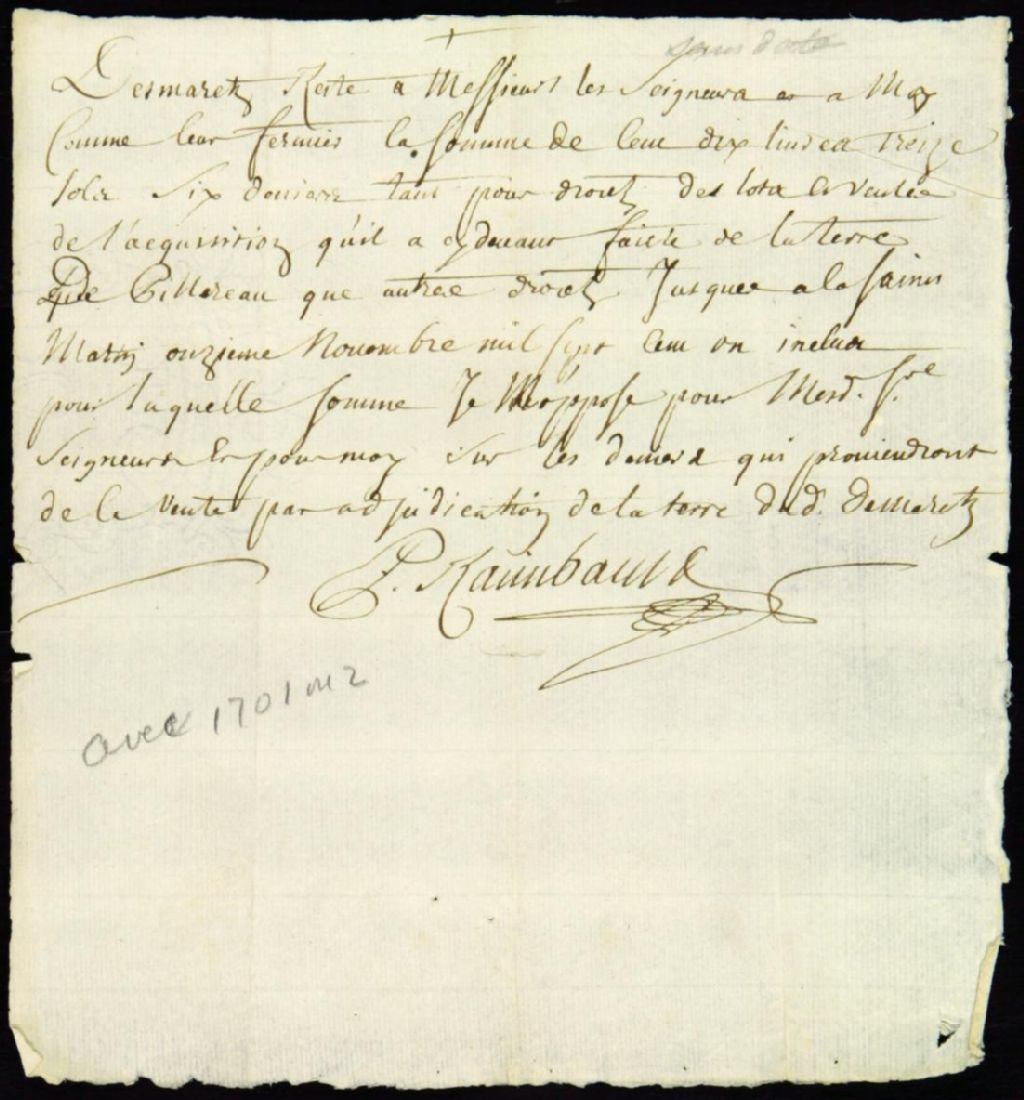 sans date
Desmaretz Reste a Messieurs les Seigneurs et a Moy
Comme leur fermier la somme de Cent dix livres treize
sols Six deniers tant pour droitz des lots et ventes
de l'acquisition qu'il a cydevant faicte de la terre
de que autres droitz Jusques a la saint
Martin onzieme Novembre mil sept Cent un inclus
pour laquelle somme Je M'oppose pour Mesd. Srs
Seigneurs et pour moy sur les deniers qui proviendront
de la vente par adjudication de la terre dud. demaretz
P. Raimbault
avec 1701 m 2